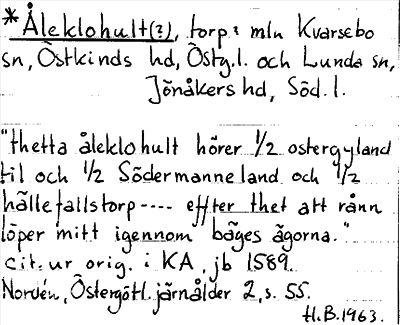 *Åleklohult(?), torp? mln Kvarsebo
sn, Östkinds hd, Östg.l. och Lunda sn,
Jönåkers hd, Söd.l.
"thetta åleklohult hörer 1/2 ostergyland
til och 1/2 Södermanneland och 1/2
hällefallstorp ---- effter thet att rånn
löper mitt igennom bäges ägorna."
cit. ur orig. i KA, jb 1589.
Nordén, Östergötl. järnålder 2, s. 55.
H.B. 1963.